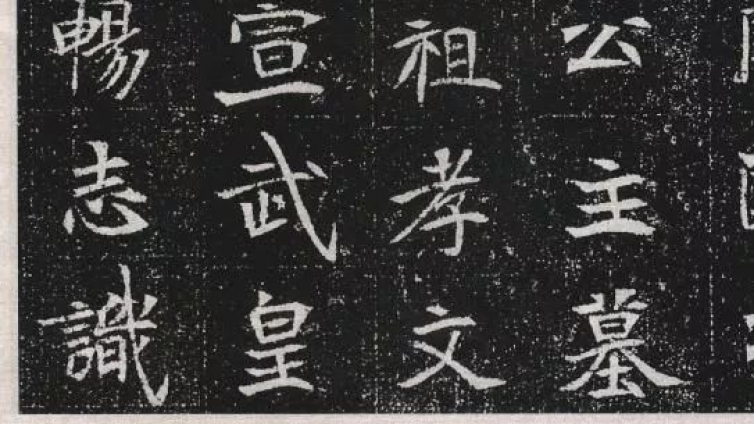 公主墓
祖孝文
宣武皇
暢志識